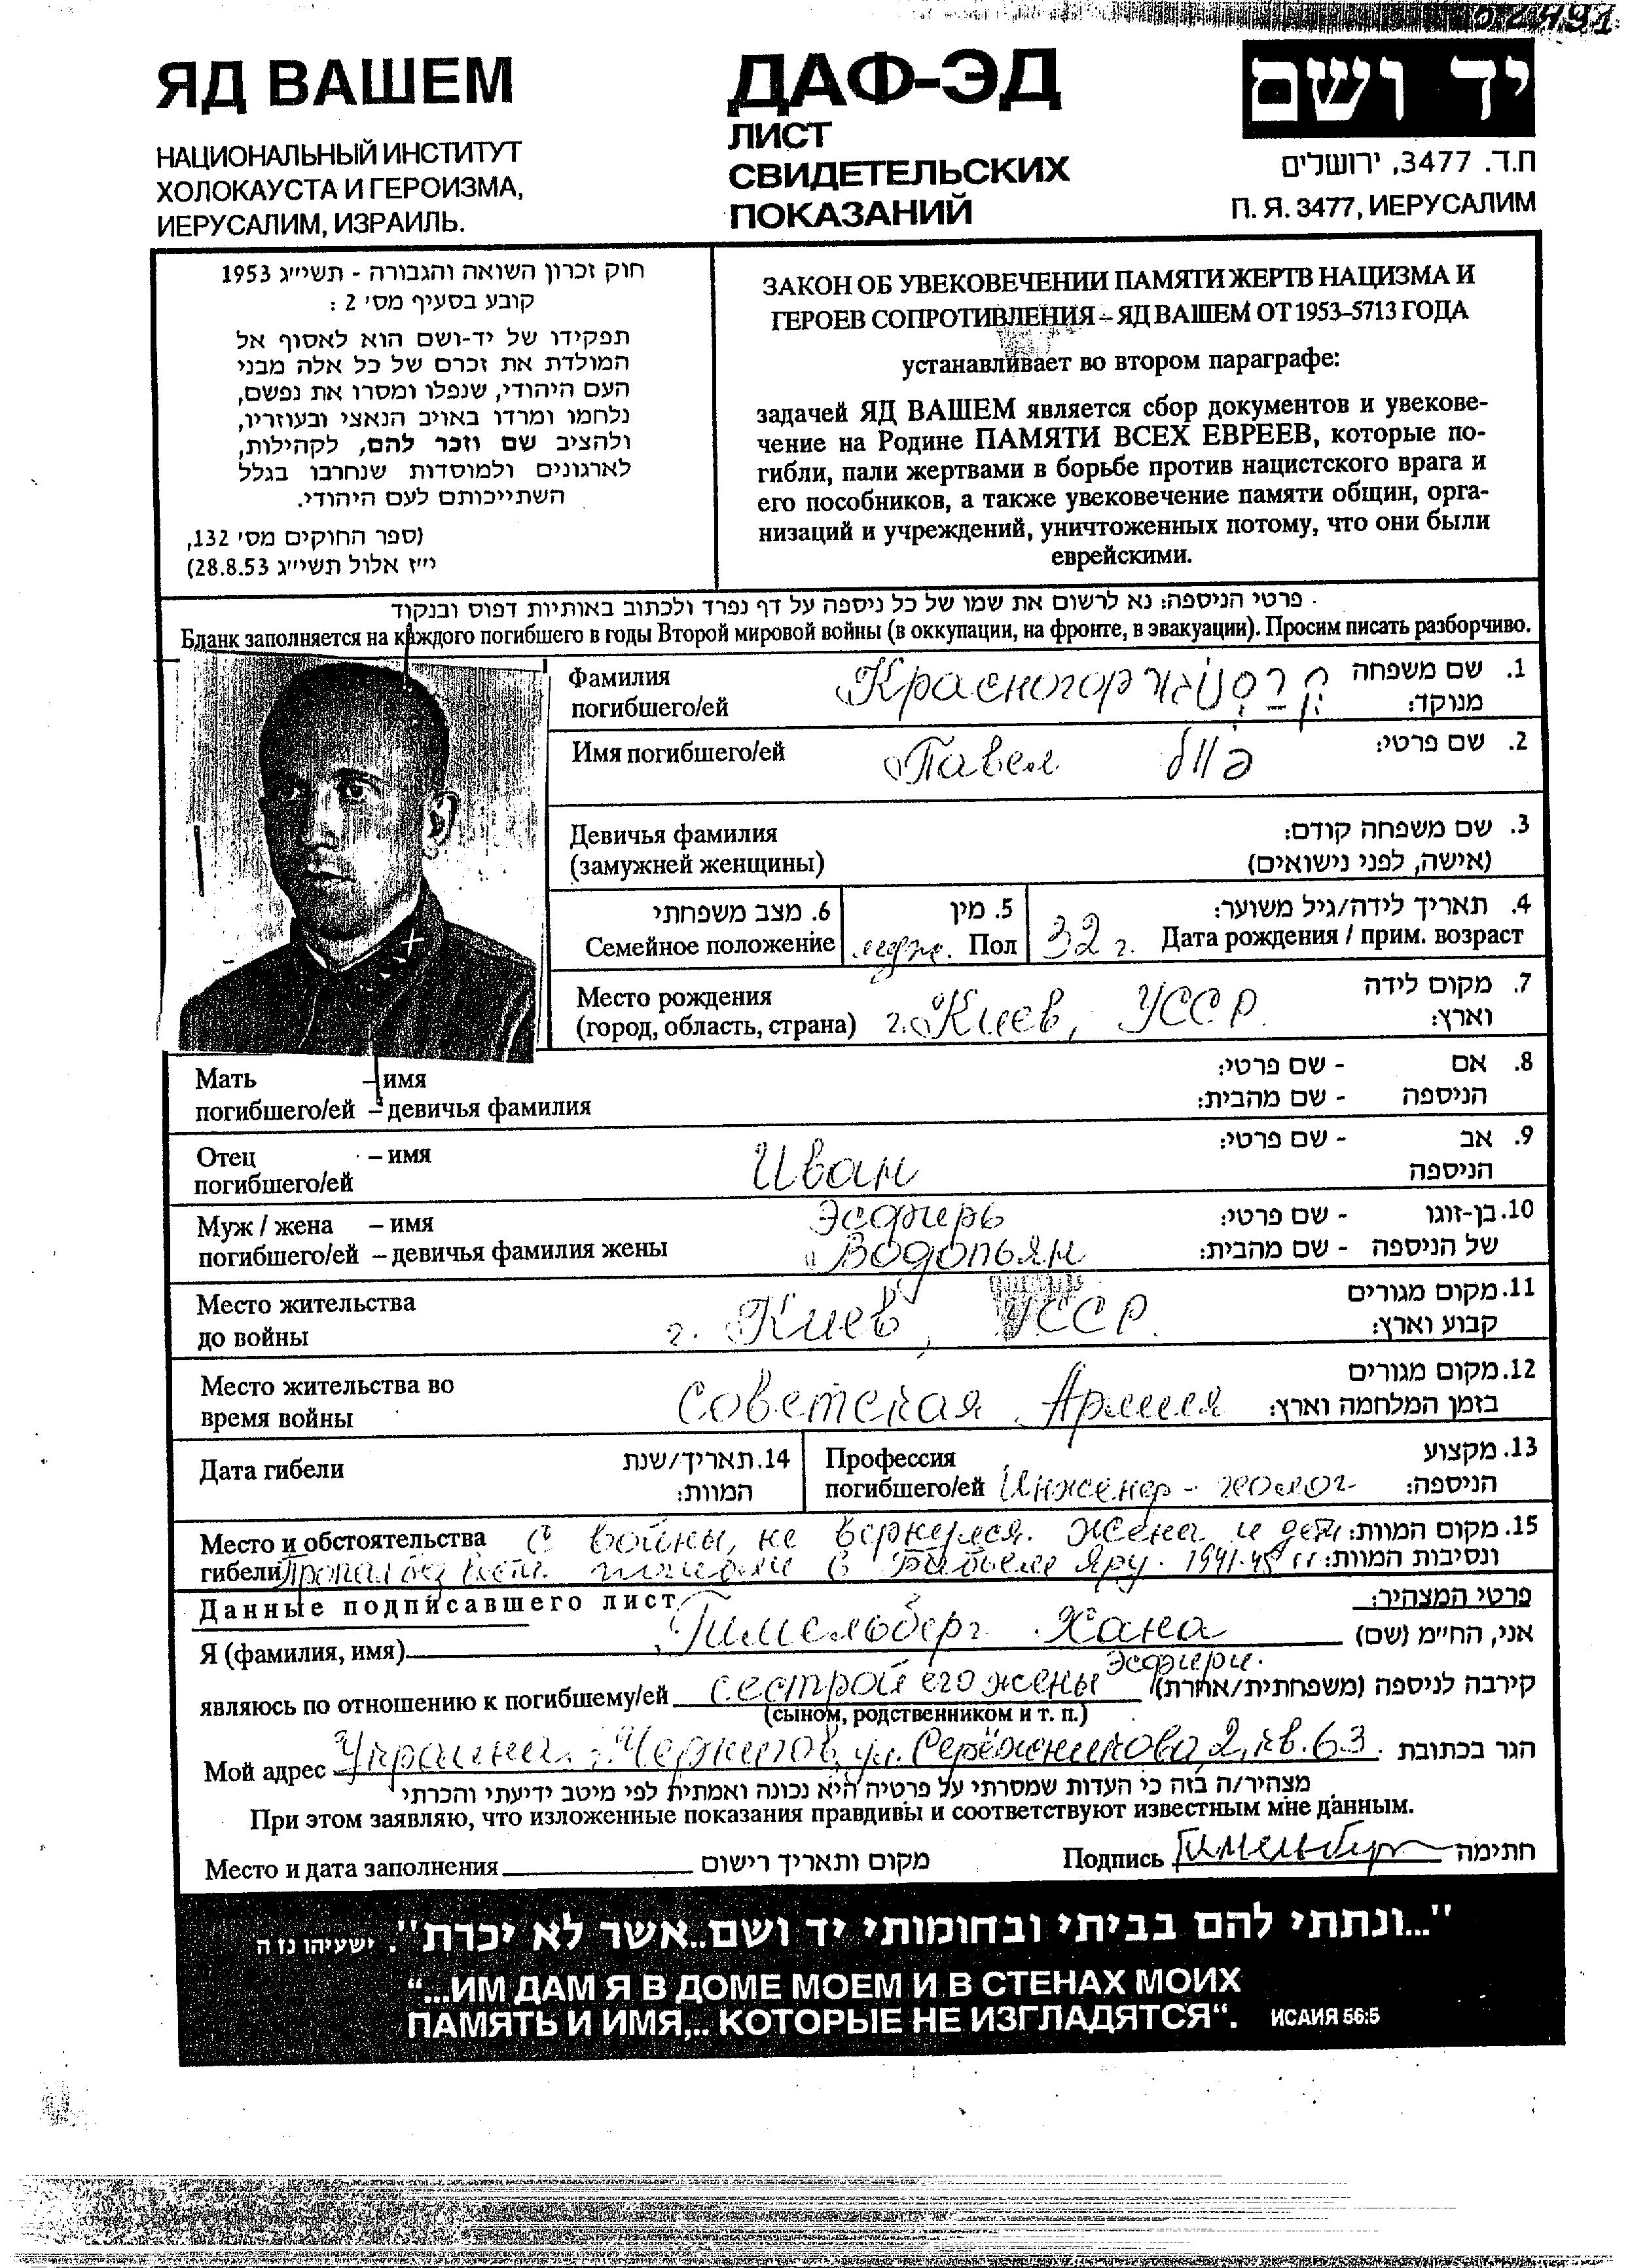 02491
ЯД ВАШЕМ
НАЦИОНАЛЬНЫЙ ИНСТИТУТ
ХОЛОКАУСТА И ГЕРОИЗМА,
ИЕРУСАЛИМ, ИЗРАИЛЬ.
ДАФ-ЭД
ЛИСТ
СВИДЕТЕЛЬСКИХ
ПОКАЗАНИЙ
יד ושם
ת.ד. 3477, ירושלים
П. Я. 3477, ИЕРУСАЛИМ
חוק זכרון השואה והגבורה - תשי״ג 1953
קובע בסעיף מס׳ 2 :
תפקידו של יד-ושם הוא לאסוף אל
המולדת את זכרם של כל אלה מבני
העם היהודי, שנפלו ומסרו את נפשם,
נלחמו ומרדו באויב הנאצי ובעוזריו,
ולהציב שם וזכר להם, לקהילות,
לארגונים ולמוסדות שנחרבו בגלל
השתייכותם לעם היהודי.
(ספר החוקים מס׳ 132,
י״ז אלול תשי״ג 28.8.53)
ЗАКОН ОБ УВЕКОВЕЧЕНИИ ПАМЯТИ ЖЕРТВ НАЦИЗМА И
ГЕРОЕВ СОПРОТИВЛЕНИЯ – ЯД ВАШЕМ ОТ 1953–5713 ГОДА
устанавливает во втором параграфе:
задачей ЯД ВАШЕМ является сбор документов и увекове-
чение на Родине ПАМЯТИ ВСЕХ ЕВРЕЕВ, которые по-
гибли, пали жертвами в борьбе против нацистского врага и
его пособников, а также увековечение памяти общин, орга-
низаций и учреждений, уничтоженных потому, что они были
еврейскими.
פרטי הניספה: נא לרשום את שמו של כל ניספה על דף נפרד ולכתוב באותיות דפוס ובנקוד
Бланк заполняется на каждого погибшего в годы Второй мировой войны (в оккупации, на фронте, в эвакуации). Просим писать разборчиво.
Фамилия Красногор קרסנוגור 1. שם משפחה
погибшего/ей מנוקד:
Имя погибшего/ей Павел פול 2. שם פרטי:
Девичья фамилия 3. שם משפחה קודם:
(замужней женщины) (אישה, לפני נישואים)
6. מצב משפחתי 5. מין 4. תאריך לידה/גיל משוער:
Семейное положение муж. Пол 32 г. Дата рождения / прим. возраст
Место рождения 7. מקום לידה
(город, область, страна) г. Киев, УССР. וארץ:
Мать – имя 8. אם - שם פרטי:
погибшего/ей – девичья фамилия הניספה - שם מהבית:
Отец – имя Иван 9. אב - שם פרטי:
погибшего/ей הניספה
Муж / жена – имя Эсфирь 10. בן-זוגו - שם פרטי:
погибшего/ей – девичья фамилия жены Водопьян של הניספה - שם מהבית:
Место жительства 11. מקום מגורים
до войны г. Киев, УССР. קבוע וארץ:
Место жительства во 12. מקום מגורים
время войны Советская Армия בזמן המלחמה וארץ:
Дата гибели 14. תאריך/שנת Профессия 13. מקצוע
המוות: погибшего/ей Инженер - геолог הניספה:
Место и обстоятельства С войны, не вернулся. Жена и дети 15. מקום המוות:
гибели Пропал без вести. погибли в Бабьем Яру. 1941-45 гг ונסיבות המוות:
Данные подписавшего лист פרטי המצהיר:
Я (фамилия, имя) Гимельберг Хана אני, הח״מ (שם)
являюсь по отношению к погибшему/ей сестрой его жены Эсфири. קירבה לניספה (משפחתית/אחרת)
(сыном, родственником и т. п.)
Мой адрес Украина г. Чернигов, ул. Серёжникова 2, кв. 63. הגר בכתובת
מצהיר/ה בזה כי העדות שמסרתי על פרטיה היא נכונה ואמתית לפי מיטב ידיעתי והכרתי
При этом заявляю, что изложенные показания правдивы и соответствуют известным мне данным.
Место и дата заполнения מקום ותאריך רישום Подпись Гимельберг חתימה
"...ונתתי להם בביתי ובחומותי יד ושם..אשר לא יכרת". ישעיהו נו ה
“...ИМ ДАМ Я В ДОМЕ МОЕМ И В СТЕНАХ МОИХ
ПАМЯТЬ И ИМЯ,.. КОТОРЫЕ НЕ ИЗГЛАДЯТСЯ“. ИСАИЯ 56:5